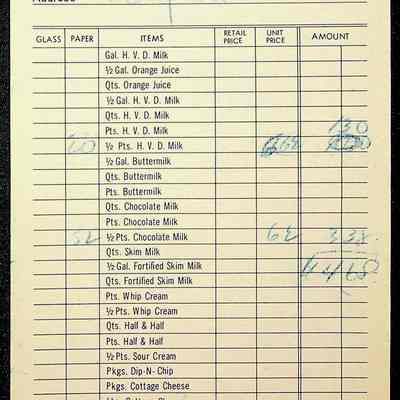 Address
GLASS PAPER ITEMS RETAIL PRICE UNIT PRICE AMOUNT
Gal. H. V. D. Milk
½ Gal. Orange Juice
Qts. Orange Juice
½ Gal. H. V. D. Milk
Qts. H. V. D. Milk
Pts. H. V. D. Milk 130
20 ½ Pts. H. V. D. Milk 6½
½ Gal. Buttermilk
Qts. Buttermilk
Pts. Buttermilk
Qts. Chocolate Milk
Pts. Chocolate Milk
52 ½ Pts. Chocolate Milk 6½ 338
Qts. Skim Milk
½ Gal. Fortified Skim Milk 468
Qts. Fortified Skim Milk
Pts. Whip Cream
½ Pts. Whip Cream
Qts. Half & Half
Pts. Half & Half
½ Pts. Sour Cream
Pkgs. Dip-N-Chip
Pkgs. Cottage Cheese